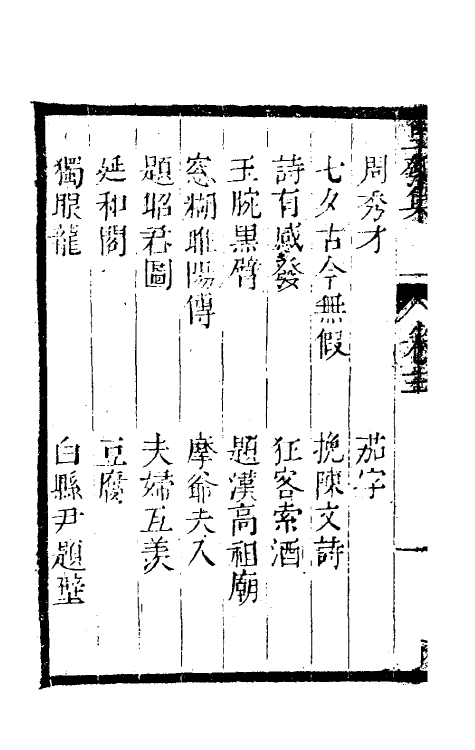 周秀才　茄字
七夕古今無假　挽陳文詩
詩有感發　狂客索酒
玉腕黑臂　題漢高祖廟
窓糊睢陽傳　摩爺夫人
題昭君圖　夫婦互羨
延和閣　豆腐
獨眼龍　白縣尹題壁